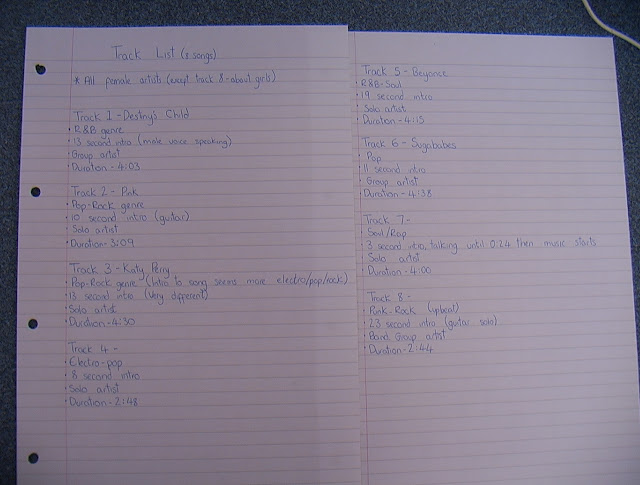 Track List (8 songs)
* All female artists (except track 8-about girls)
Track 1 - Destiny's Child
• R&B genre
• 13 second intro (male voice speaking)
• Group artist
• Duration - 4:03
Track 2 - Pink
• Pop-Rock genre
• 10 second intro (guitar)
• Solo artist
• Duration - 3:09
Track 3 - Katy Perry
• Pop-Rock genre (Intro to song seems more electro/pop/rock)
• 13 second intro (Very different)
• Solo artist
• Duration - 4:30
Track 4 -
• Electro-pop
• 8 second intro
• Solo artist
• Duration - 2:48
Track 5 - Beyonce
• R&B-Soul
• 19 second intro
• Solo artist
• Duration - 4:15
Track 6 - Sugababes
• Pop
• 11 second intro
• Group artist
• Duration - 4:38
Track 7 -
• Soul/Rap
• 3 second intro, talking until 0:24 then music starts
• Solo artist
• Duration - 4:00
Track 8 -
• Punk-Rock (upbeat)
• 23 second intro (guitar solo)
• Band Group artist
• Duration - 2:44